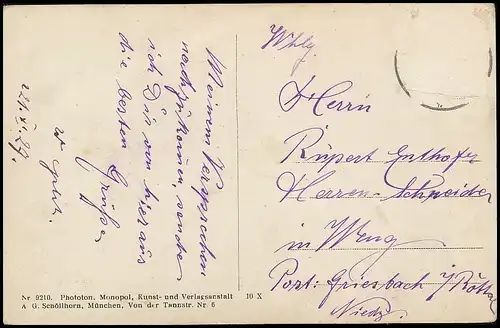 Meinem Versprechen
nachzukommen, sende
ich Dir von hier aus
die besten Grüße
22. V. 27.
Whlg.
Herrn
Rupert Enthofer
Herren-Schneider
in Weng
Post: Griesbach i/Rottal
Niedb.
Nr 9210. Phototon. Monopol, Kunst- und Verlagsanstalt 10 X
A G. Schöllhorn, München, Von der Tannstr. Nr 6